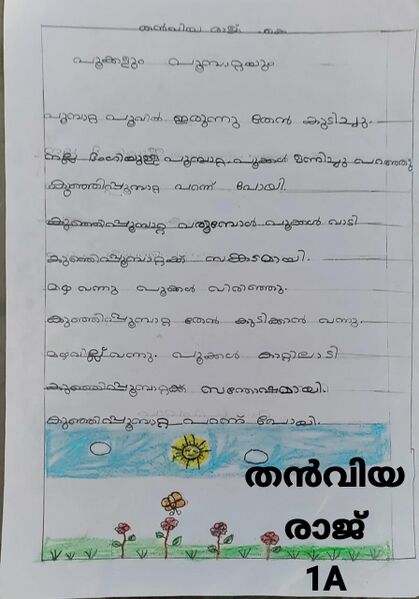 തൻവിയ രാജ്. കെ
പൂക്കളും പൂമ്പാറ്റയും
പൂമ്പാറ്റ പൂവിൽ ഇരുന്നു തേൻ കുടിച്ചു.
നല്ല ഭംഗിയുള്ള പൂമ്പാറ്റ. പൂക്കൾ മണിച്ചു പറഞ്ഞു
കുഞ്ഞിപ്പൂമ്പാറ്റ പറന്ന് പോയി.
കുഞ്ഞിപ്പൂമ്പാറ്റ വരുമ്പോൾ പൂക്കൾ വാടി
കുഞ്ഞിപ്പൂമ്പാറ്റക്ക് സങ്കടമായി.
മഴ വന്നു പൂക്കൾ വിരിഞ്ഞു.
കുഞ്ഞിപ്പൂമ്പാറ്റ തേൻ കുടിക്കാൻ വന്നു.
മഴവില്ല് വന്നു. പൂക്കൾ കാറ്റിലാടി
കുഞ്ഞിപ്പൂമ്പാറ്റക്ക് സന്തോഷമായി.
കുഞ്ഞിപ്പൂമ്പാറ്റ പറന്ന് പോയി.
തൻവിയ
രാജ്
1A